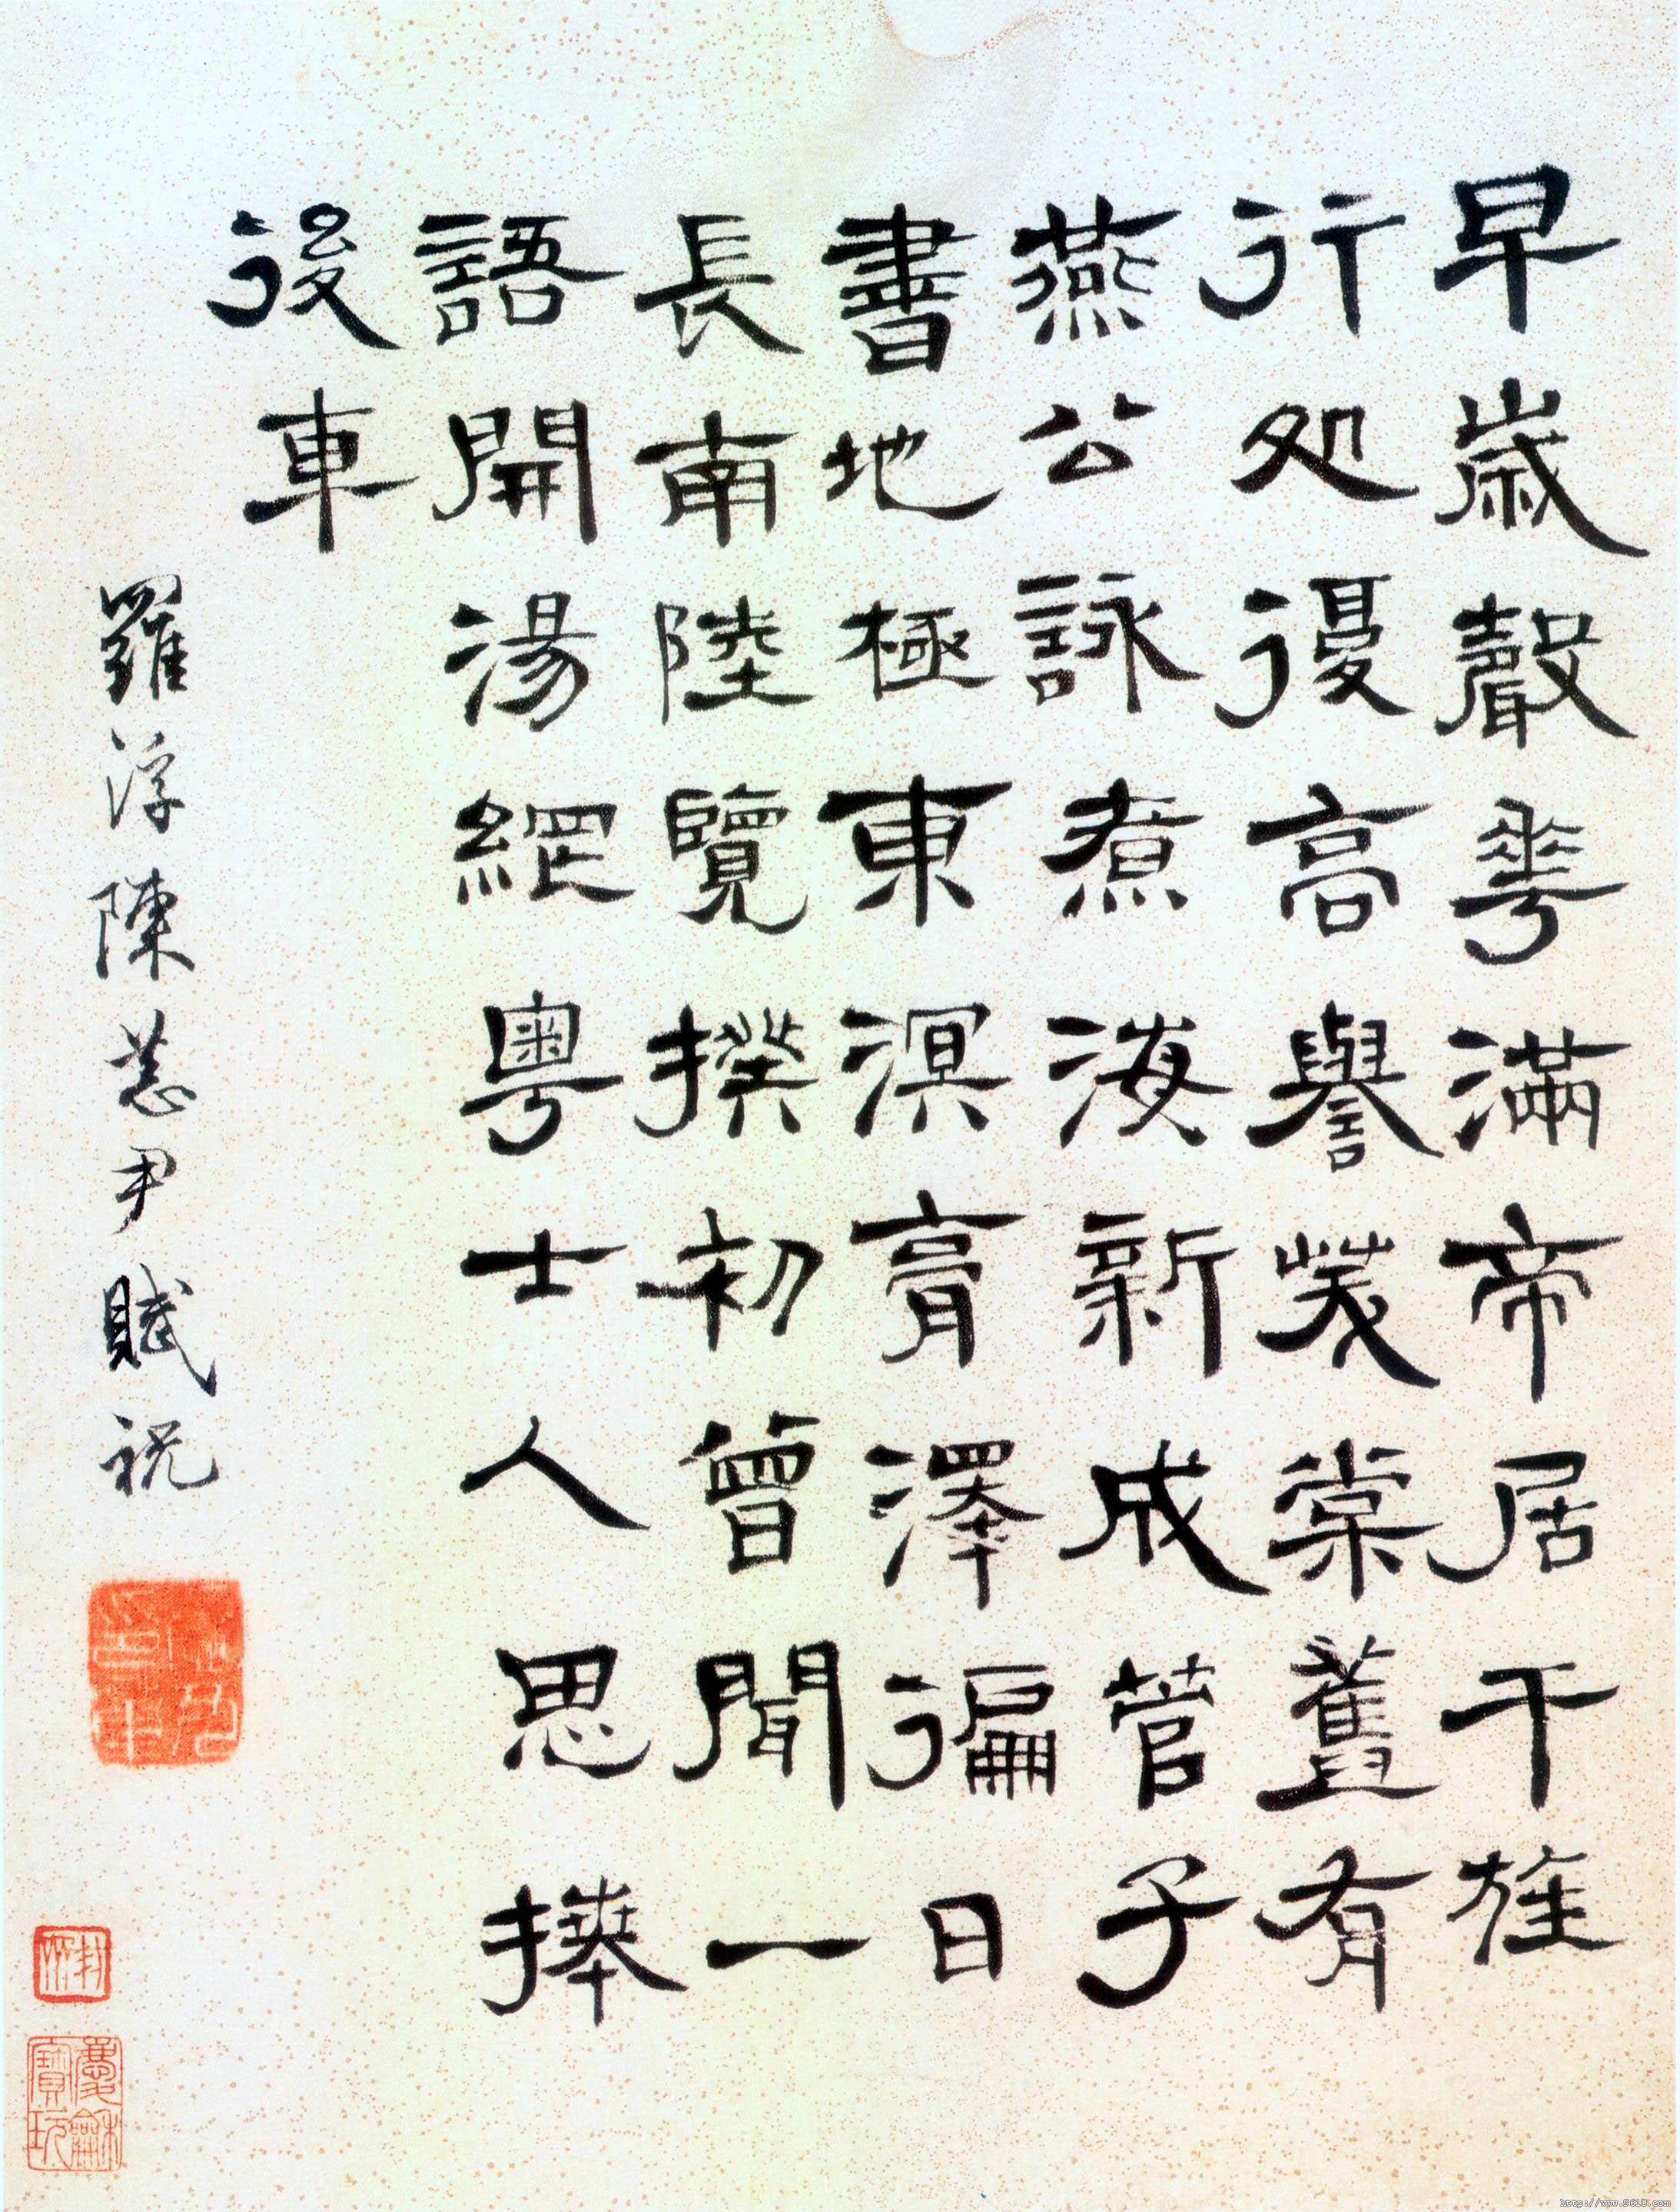 早歲聲華滿帝居干旌
行处復高譽茇棠舊有
燕公詠煮海新成管子
書地極東溟膏澤徧日
長南陸覽揆初曾聞一
語開湯網粵士人思捧
後車
羅浮陳恭尹賦祝
http://www.9610.com